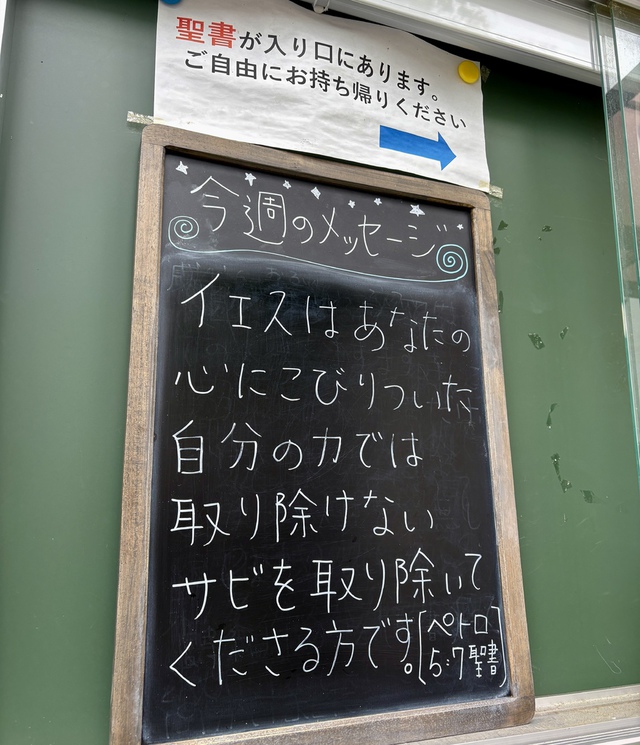 聖書が入り口にあります。
ご自由にお持ち帰りください
今週のメッセージ
イエスはあなたの
心にこびりついた
自分の力では
取り除けない
サビを取り除いて
くださる方です。[ペトロ
5:7聖書]